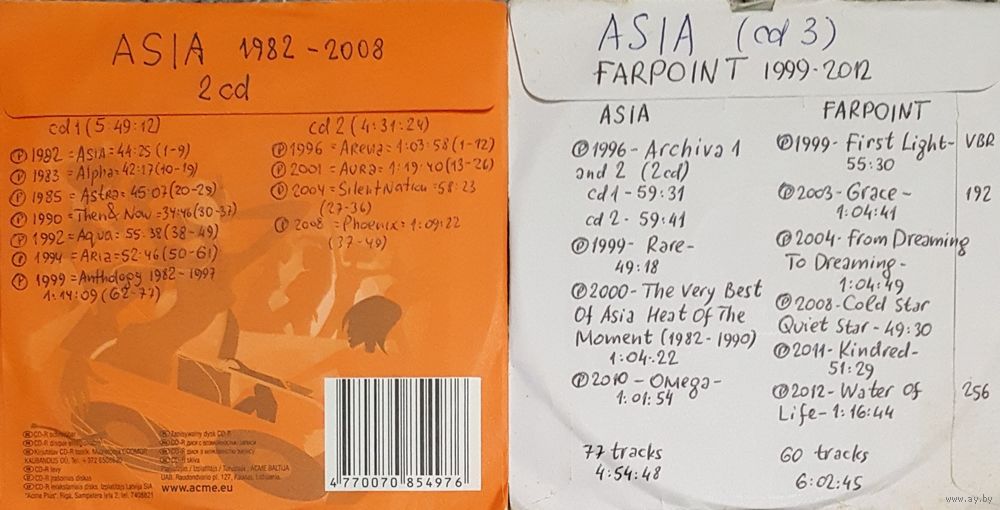 ASIA 1982-2008
2cd
cd1 (5:49:12)
Ⓟ 1982 = ASIA = 44:25 (1-9)
Ⓟ 1983 = Alpha = 42:17 (10-19)
Ⓟ 1985 = Astra = 45:07 (20-29)
Ⓟ 1990 = Then & Now = 34:46 (30-37)
Ⓟ 1992 = Aqua = 55:38 (38-49)
Ⓟ 1994 = ARIA = 52:46 (50-61)
Ⓟ 1999 = Anthology 1982-1997
1:14:09 (62-77)
cd2 (4:31:24)
Ⓟ 1996 = Arena = 1:03:58 (1-12)
Ⓟ 2001 = AURA = 1:19:40 (13-26)
Ⓟ 2004 = Silent Nation = 58:23
(27-36)
Ⓟ 2008 = Phoenix = 1:09:22
(37-49)
CD-R
CD-R
CD-R
CD-R
www.acme.eu
4 770070 854976
ASIA (cd 3)
FARPOINT 1999-2012
ASIA
Ⓟ1996- Archiva 1
and 2 (2cd)
cd1 - 59:31
cd2 - 59:41
Ⓟ1999- Rare-
49:18
Ⓟ2000- The Very Best
Of Asia Heat Of The
Moment (1982-1990)
1:04:22
Ⓟ2010 - Omega-
1:01:54
77 tracks
4:54:48
FARPOINT
Ⓟ1999- First Light- VBR
55:30
Ⓟ2003- Grace- 192
1:04:41
Ⓟ2004- From Dreaming
To Dreaming-
1:04:49
Ⓟ2008- Cold Star
Quiet Star - 49:30
Ⓟ2011- Kindred-
51:29
Ⓟ2012- Water Of 256
Life- 1:16:44
60 tracks
6:02:45
www.ay.by